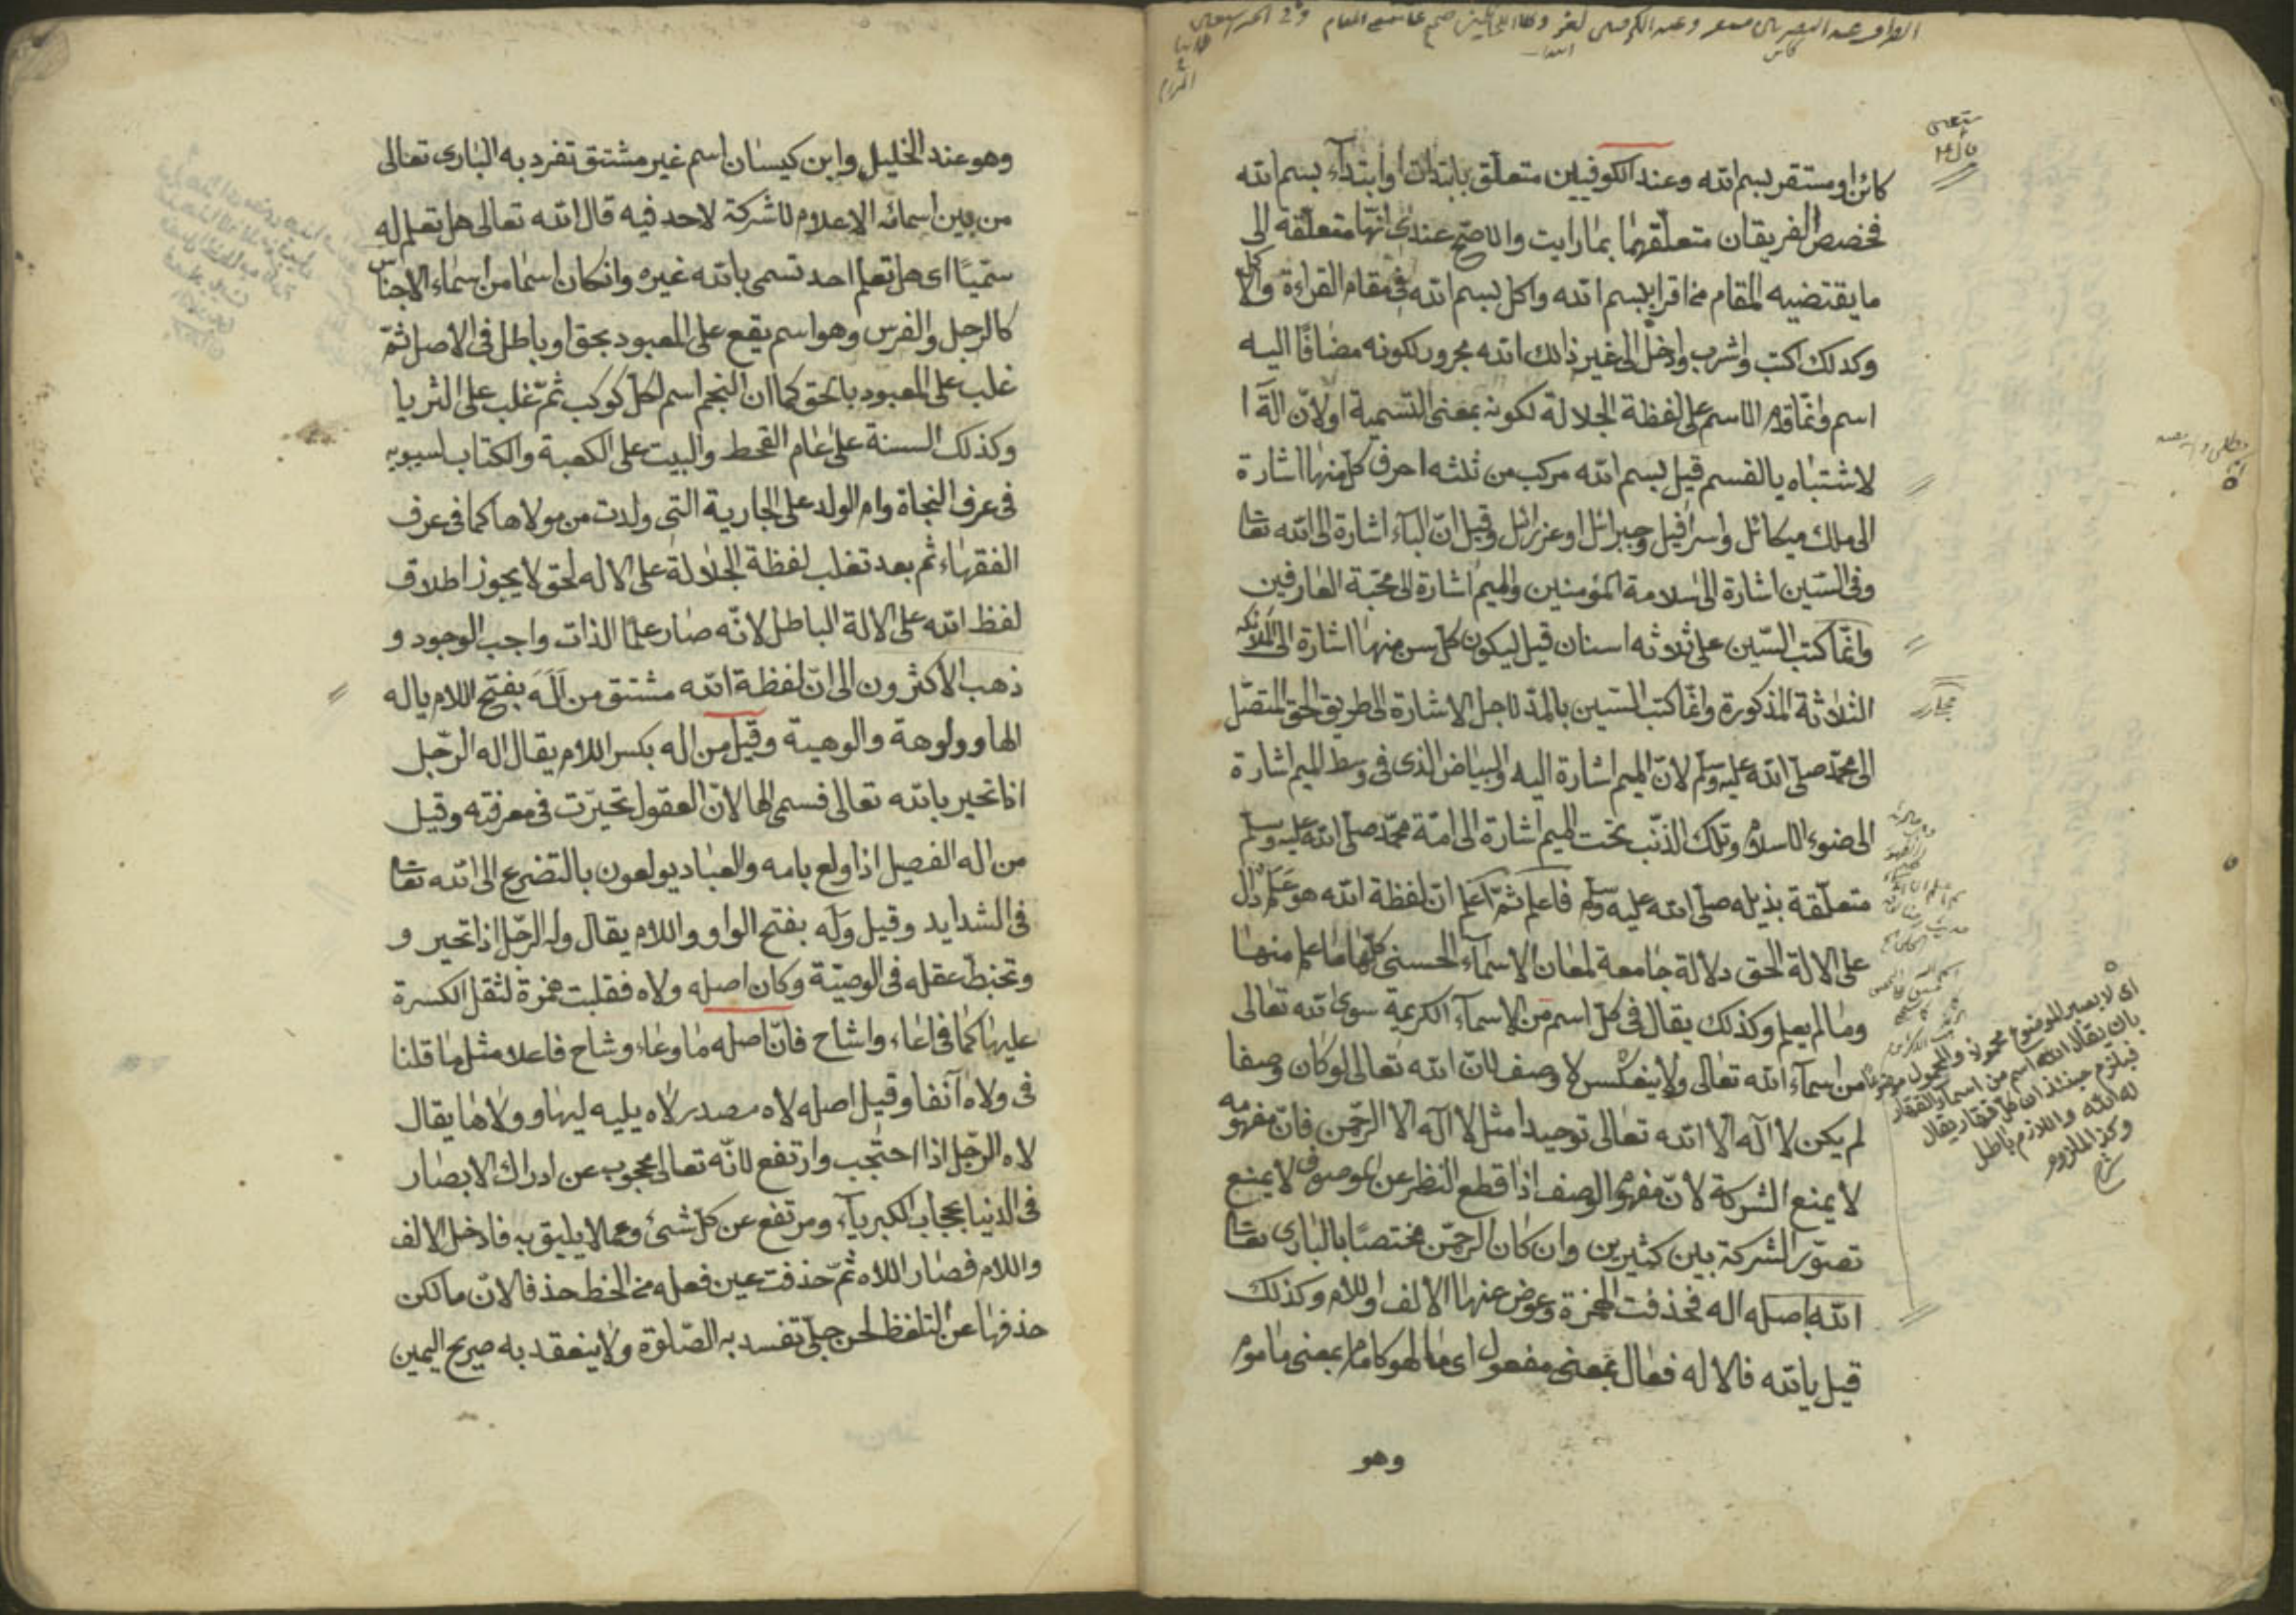 كائن او مستقر بسم الله وعند الكوفيين متعلق بابتدات او ابتداء بسم الله
فخصص الفريقان متعلقهما بما رايت والاصح عندى انها متعلقة الى
ما يقتضيه المقام نحو اقرا بسم الله واكل بسم الله فى مقام القراءة والاكل
وكدلك اكتب واشرب وادخل الى غير ذالك الله مجرور لكونه مضافا اليه
اسم وانما قدم الاسم على لفظة الجلالة لكونه بمعنى التسمية او لان
لاشتباه بالقسم قيل بسم الله مركب من ثلثه احرف كل منها اشارة
الى ملك ميكائل واسرافيل وجبرائل او عزرائل وقيل ان الباء اشارة الى الله تعا
وفى السين اشارة الى سلامة المؤمنين والميم اشارة الى محبة العارفين
وانما كتب السين على ثلاثه اسنان قيل ليكون كل سن منها اشارة الى الملائكه
الثلاثة المذكورة وانما كتب السين بالمد لاجل الاشارة الى طريق الحق المتصل
الى محمد صلى الله عليه وسلم لان الميم اشارة اليه والبياض الذى فى وسط الميم اشارة
الى ضوء الاسلام وتلك الذنب تحت الميم اشارة الى امة محمد صلى الله عليه وسلم
متعلقة بذيله صلى الله عليه وسلم فاعلم ثم اعلم ان لفظة الله هو علم دال
على الالة الحق دلالة جامعة لمعان الاسماء الحسنى كلها ما علم منها
وما لم يعلم وكذلك يقال فى كل اسم من الاسماء الكريمة سوى الله تعالى
من اسماء الله تعالى ولا ينعكس لا وصف لان الله تعالى لو كان وصفا
لم يكن لا اله الا الله تعالى توحيدا مثل لا اله الا الرحمن فان مفهومه
لا يمنع الشركة لان مفهوم الوصف اذا قطع النظر عن الموصوف لا يمنع
تصور الشركة بين كثيرين وان كان الرحمن مختصا بالبارى تعا
الله اصله اله فحذفت الهمزة وعوض عنها الالف واللام وكذلك
قيل يا الله فالاله فعال بمعنى مفعول اى مالهو كامام بمعنى ماموم
وهو
اى لا يصير الموضوع محمولا والمحمول موضوعا
بان يقال الله اسم من اسماء القفار
فيلزم حينئذ ان كل قفار يقال
له الله واللازم باطل
وكذا الملزوم
وهو عند الخليل وابن كيسان اسم غير مشتق تفرد به البارى تعالى
من بين اسمائه الاعلام لا شركة لاحد فيه قال الله تعالى هل تعلم له
سميا اى هل تعلم احد تسمى بالله غيره وانكان اسما من اسماء الاجناس
كالرجل والفرس وهو اسم يقع على المعبود بحق او باطل فى الاصل ثم
غلب على المعبود بالحق كما ان النجم اسم لكل كوكب ثم غلب على الثريا
وكذلك السنة على عام القحط والبيت على الكعبة والكتاب لسيبويه
فى عرف النجاة وام الولد على الجارية التى ولدت من مولاها كما فى عرف
الفقهاء ثم بعد تغلب لفظة الجلالة على الاله لحق لا يجوز اطلاق
لفظ الله على الالة الباطل لانه صار علما الذات واجب الوجود و
ذهب الاكثرون الى ان لفظة الله مشتق من اله بفتح اللام ياله
الها وولوهة والوهية وقيل من اله بكسر اللام يقال اله الرجل
اذا تحير بالله تعالى فسمى الها لان العقول تحيرت فى معرفته وقيل
من اله الفصيل اذا ولع بامه والعباد يولعون بالتضرع الى الله تعا
فى الشدايد وقيل وله بفتح الواو واللام يقال وله الرجل اذا تحير و
وتخبط عقله فى الوصية وكان اصله ولاه فقلبت همزة لثقل الكسرة
عليها كما فى اعاء واشاح فان اصله ما وعاء وشاح فاعلا مثل ما قلنا
فى ولاه آنفا وقيل اصله لاه مصدر لاه يليه ليها و ولاها يقال
لاه الرجل اذا احتجب وارتفع لانه تعالى محجوب عن ادراك الابصار
فى الدنيا بحجاب الكبرياء ومرتفع عن كل شئ وعما لا يليق به فادخل الالف
واللام فصار اللاه ثم حذفت عين فعله من الخط حذفا لان ما لكن
حذفها عن التلفظ لحن جلى تفسد به الصلوة ولا ينعقد به صريح اليمين